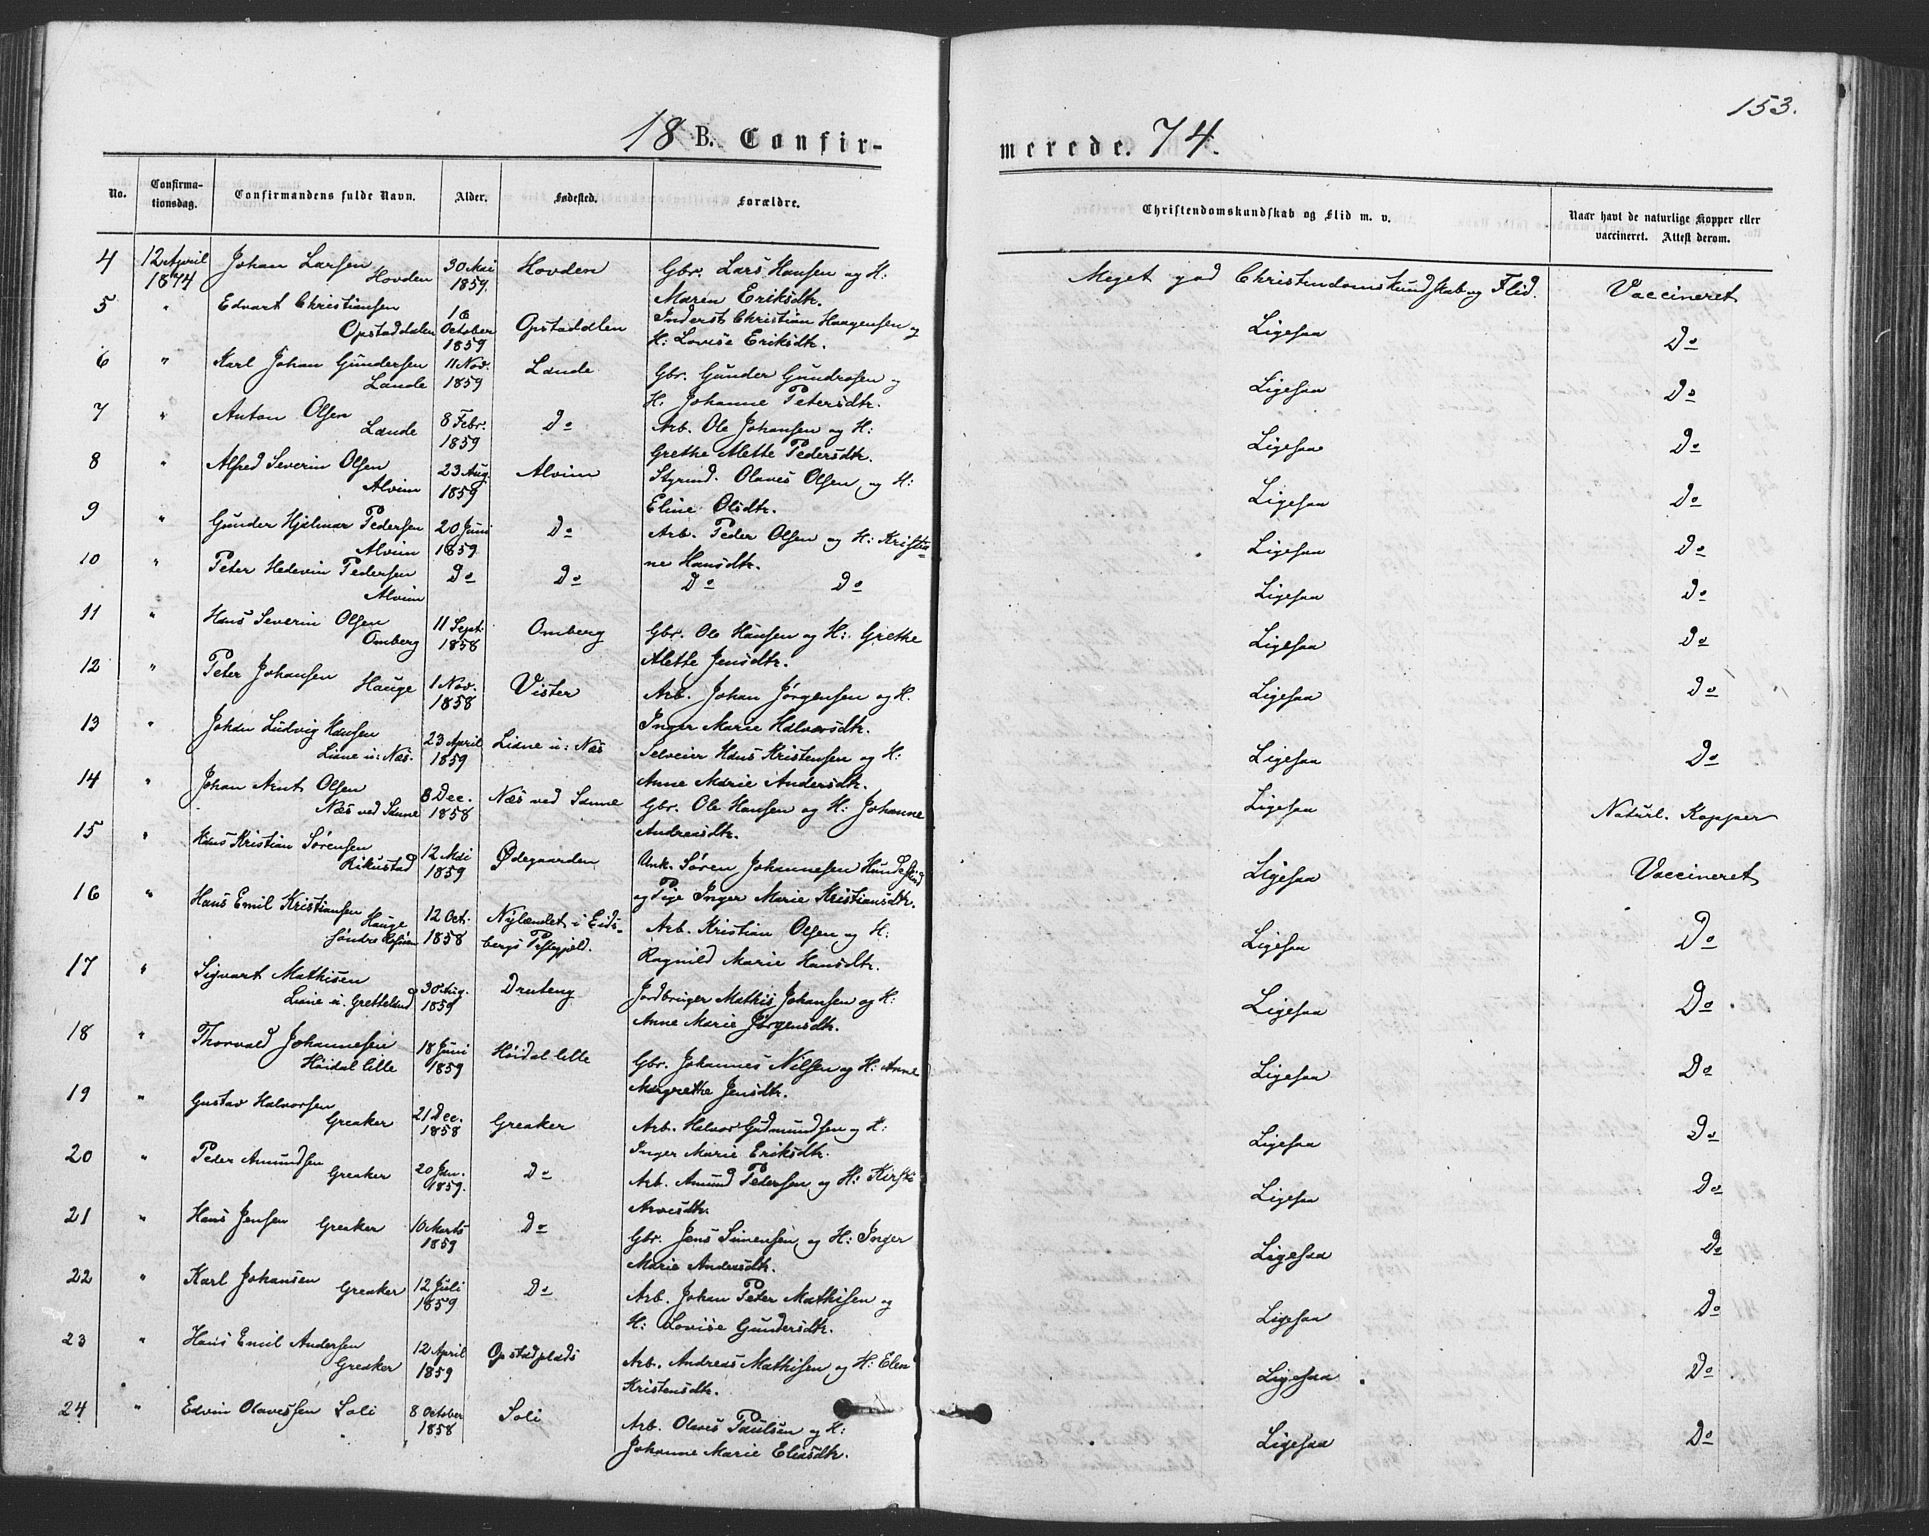 153.
18 B. Confir-
merede. 74.
No.
Confirma-
tionsdag.
Confirmandens fulde Navn.
Alder.
Fødested.
Forældre.
Christendomskundskab og Flid m. v.
Naar havt de naturlige Kopper eller
vaccineret. Attest derom.
4 12 April Johan Larsen 30 Mai Hovden Gbr. Lars Hansen og H: Meget god Christendomskundskab og Flid. Vaccineret
1874 Hovden 1859. Maren Eriksdtr.
5 " Edvart Christiansen 16 Inderst Christian Haagensen og Ligesaa Do
Opstaddalen October Opstaddlen H: Lovise Eriksdtr.
1859
6 " Karl Johan Gundersen 11 Nov. Lande Gbr. Gunder Gundrosen og Ligesaa Do
Lande 1859 H: Johanne Petersdtr.
7 " Anton Olsen 8 Febr. Do Arb. Ole Johansen og H: Ligesaa Do
Lande 1859 Grethe Alette Pedersdtr.
8 " Alfred Severin Olsen 23 Aug. Alvim Styrmd. Olaves Olsen og H: Ligesaa Do
Alvim 1859 Eline Olsdtr.
9 " Gunder Hjalmar Pedersen 20 Juni Do Arb. Peder Olsen og H: Kristia- Ligesaa Do
Alvim 1859 ne Hansdtr.
10 " Peter Hedevin Pedersen Do Do Do Do Ligesaa Do
Alvim
11 " Hans Severin Olsen 11 Sept. Omberg Gbr. Ole Hansen og H: Grethe Ligesaa Do
Omberg 1858 Alette Jensdtr.
12 " Peter Johansen Hauge 1 Nov. Vister Arb. Johan Jørgensen og H. Ligesaa Do
1858 Inger Marie Halvorsdtr.
13 " Johan Ludvig Hansen 23 April Liane u: Næs Selveier Hans Kristensen og H: Ligesaa Do
Liane u: Næs. 1859 Anne Marie Andersdtr.
14 " Johan Arnt Olsen 8 Dec. Næs ved Sanne Gbr. Ole Hansen og H: Johanne Ligesaa Naturl. Kopper
Næs ved Sanne 1858 Andreasdtr.
15 " Hans Kristian Sørensen 12 Mai Ødegaarden Unk. Søren Johannesen Ligesaa Vaccineret
Rikustad 1859 og Pige Inger Marie Kristiansdtr.
16 " Hans Emil Kristiansen 12 Oct. Nylændet i Eids- Arb. Kristian Olsen og H: Ligesaa Do
Hauge 1858 bergs Præstegjeld. Ragnild Marie Hansdtr.
Søndre
17 " Sigvart Mathisen 30 Aug. Druteng Jordbruger Mathis Johansen og H: Ligesaa Do
Liane u. Grettelund 1859 Anne Marie Jørgensdtr.
18 " Thorvald Johannesen 18 Juni Høidal lille Gbr. Johannes Nilsen og H: Anne Ligesaa Do
Høidal lille 1859 Margrethe Jensdtr.
19 " Gustav Halvorsen 21 Dec. Greaker Arb. Halvor Gudmundsen og H: Ligesaa Do
Greaker 1858 Inger Marie Eriksdtr.
20 " Peder Amundsen 20 Jan. Do Arb. Amund Pedersen og H: Kirsti Ligesaa Do
Greaker 1859. Arvesdtr.
21 " Hans Jensen Greaker 10 Marts Do Gbr. Jens Simensen og H: Inger Ligesaa Do
1859 Marie Andersdtr.
22 " Karl Johansen 12 Juli Do Arb. Johan Peter Mathisen og Ligesaa Do
Greaker 1859 H: Lovise Gundersdtr.
23 " Hans Emil Andersen 12 April Opstadplads Arb. Andreas Mathisen og H: Elen Ligesaa Do
Greaker 1859 Kristensdtr.
24 " Edvin Olavessen Soli 8 October Soli Arb. Olaves Paulsen og H: Ligesaa Do
1858 Johanne Marie Eliasdtr.